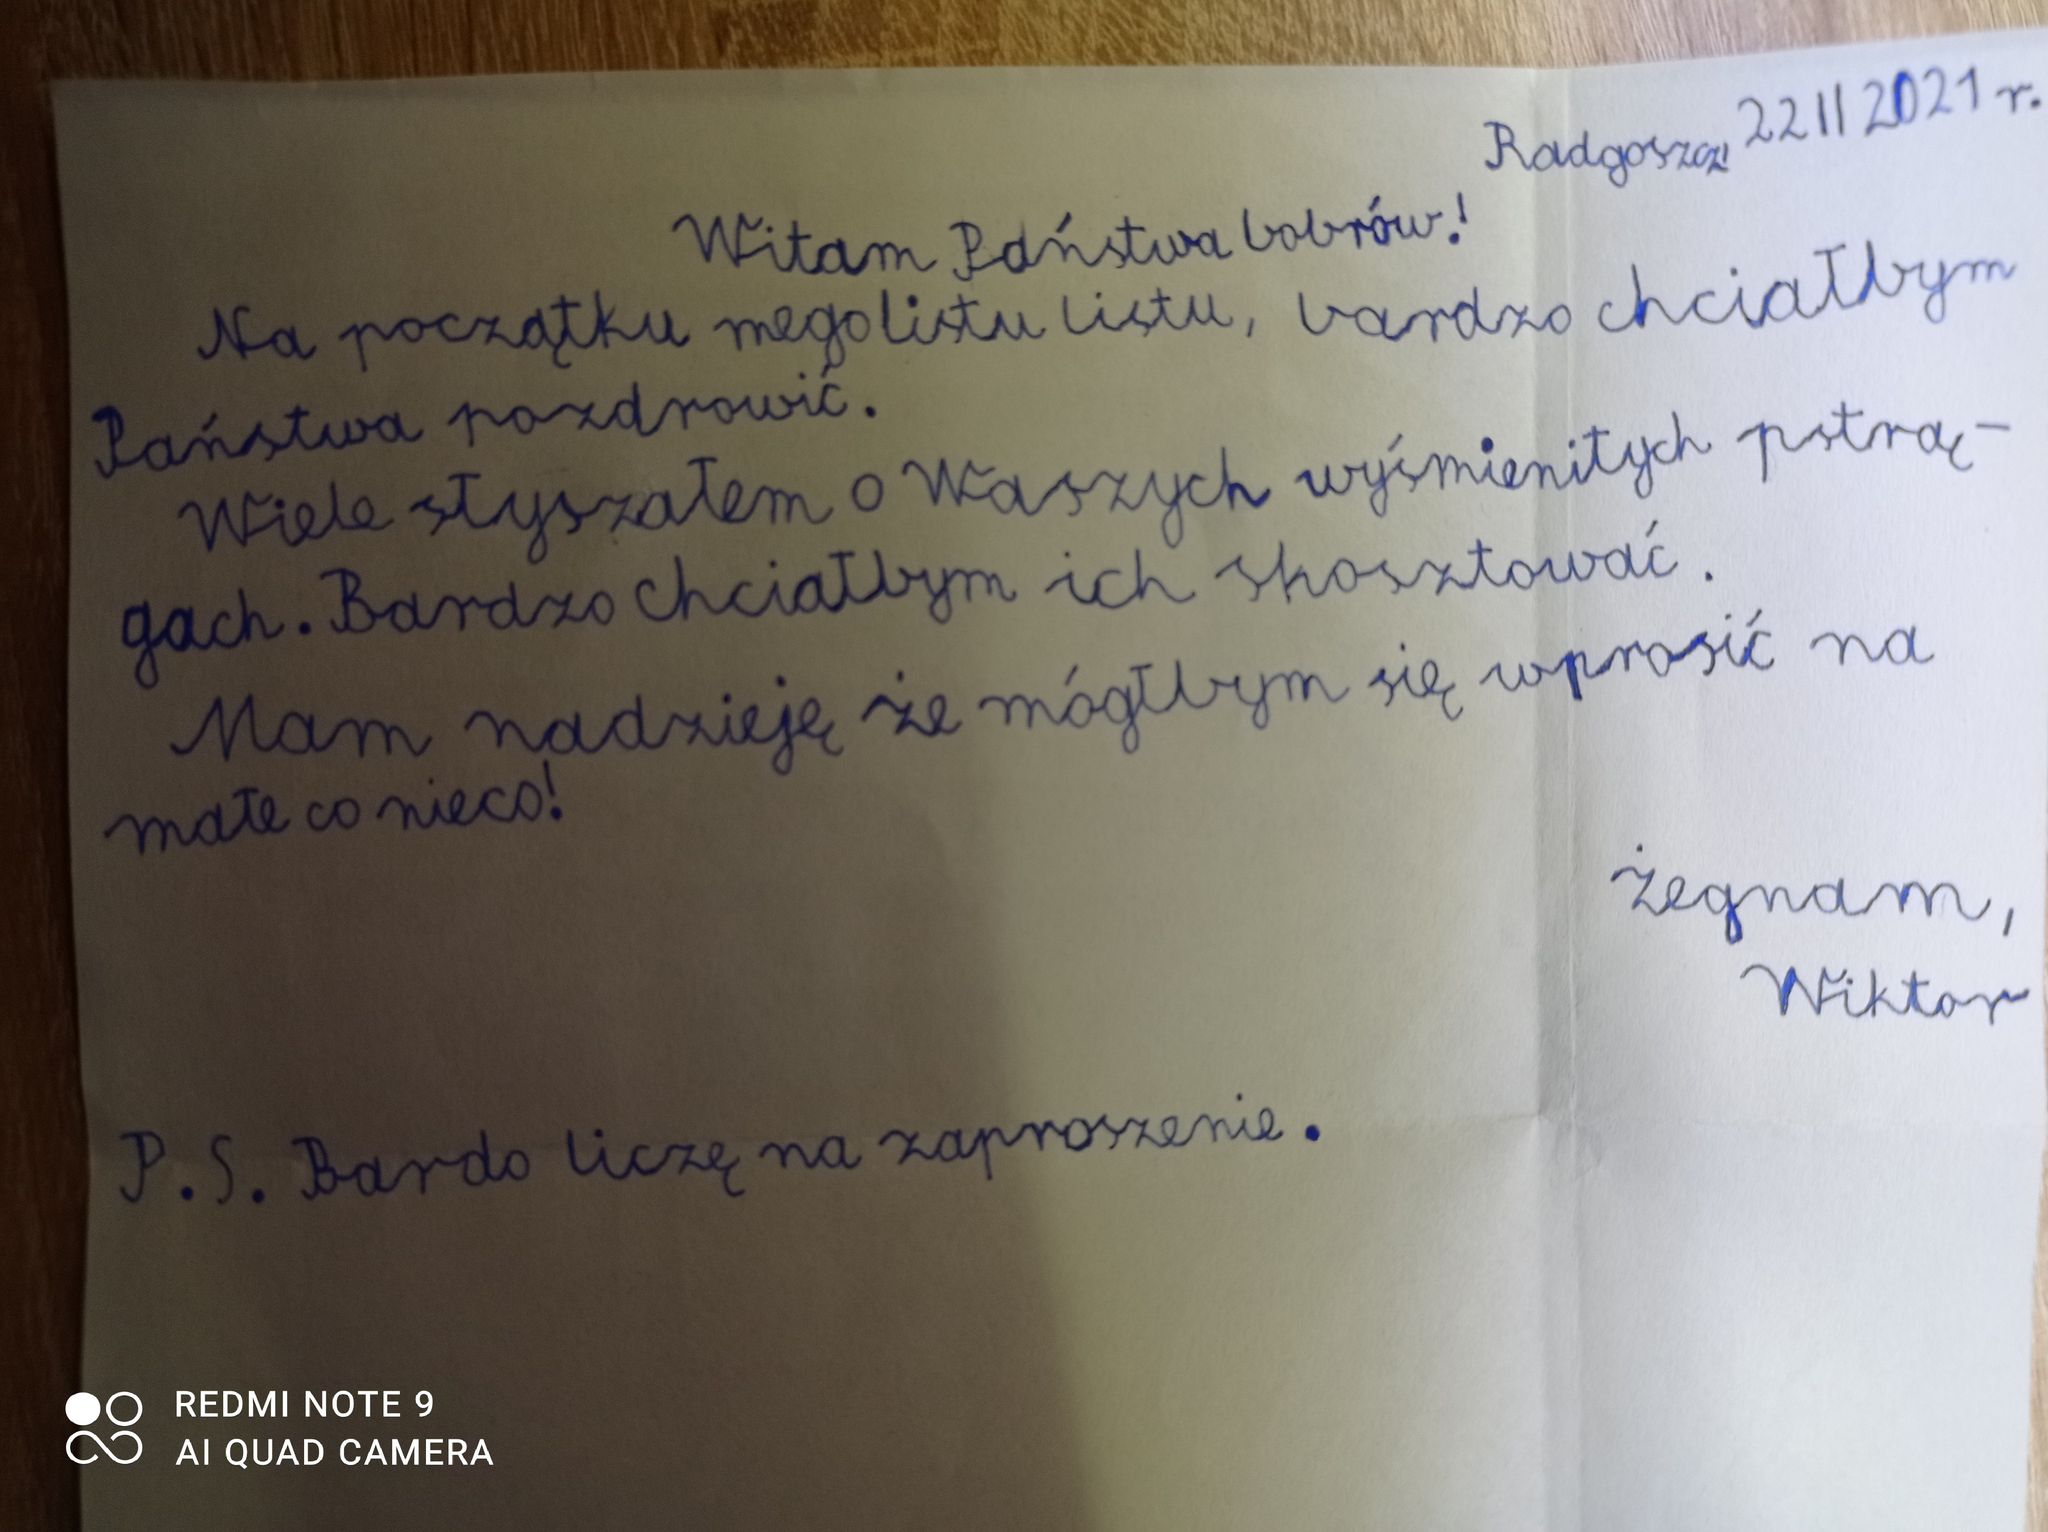 Radgoszcz 22 II 2021 r.
Witam Państwa bobrów!
Na początku mego listu listu, bardzo chciałbym
Państwa pozdrowić.
Wiele słyszałem o Waszych wyśmienitych pstrą-
gach. Bardzo chciałbym ich skosztować.
Mam nadzieję że mógłbym się wprosić na
małe co nieco!
Żegnam,
Wiktor
P.S. Bardo liczę na zaproszenie.
REDMI NOTE 9
AI QUAD CAMERA